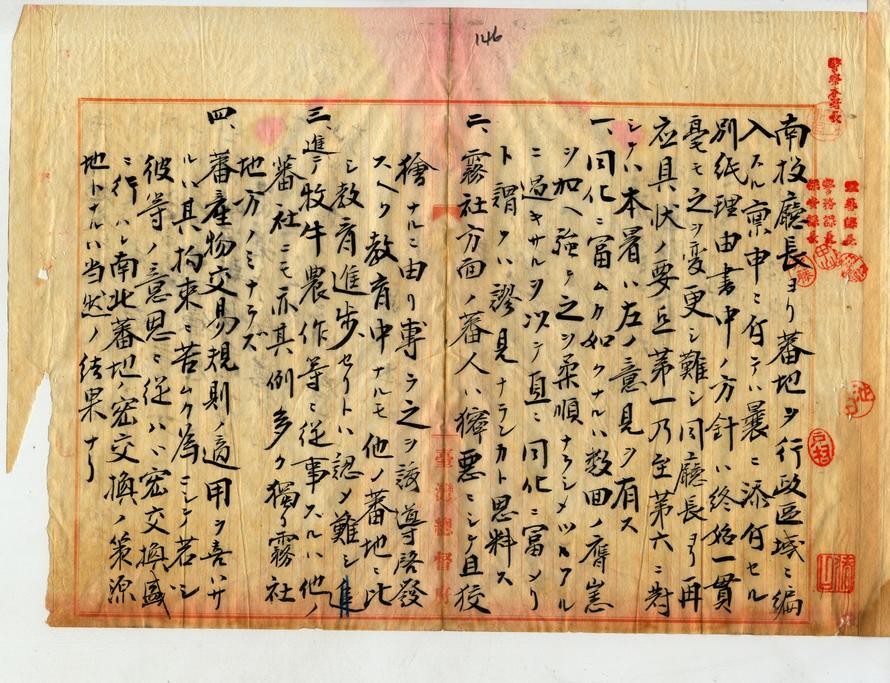 146
警察本署長
警務課長
保安課長
南投廳長ヨリ蕃地ヲ行政區域ニ編
入スル禀申ニ付テハ曩ニ添付セル
別紙理由書中ノ方針ハ終始一貫
毫モ之ヲ變更シ難シ同廳長ヨリ再
応具状ノ要点第一乃至第六ニ對
シテハ本署ハ左ノ意見ヲ有ス
一、同化ニ冨ムカ如クナルハ数回ノ膺懲
ヲ加ヘ強テ之ヲ柔順ナラシメツヽアル
ニ過キサルヲ以テ直ニ同化ニ冨メリ
ト謂フハ謬見ナランカト思料ス
二、霧社方面ノ蕃人ハ獰悪ニシテ且狡
獪ナルニ由リ專ラ之ヲ誘導啓發
スヘク教育中ナルモ他ノ蕃地ニ比
シ教育進歩セリトハ認メ難シ進
三、進テ牧牛農作等ニ從事スルハ他ノ
蕃社ニモ亦其例多ク獨リ霧社
地方ノミナラズ
四、蕃産物交易規則ノ適用ヲ喜ハサ
ルハ其拘束ニ苦ムカ為ニシテ若シ
彼等ノ意思ニ従ハヽ密交換盛
ニ行ハレ南北蕃地ノ密交換ノ策源
地トナルハ当然ノ結果ナリ
臺灣總督府